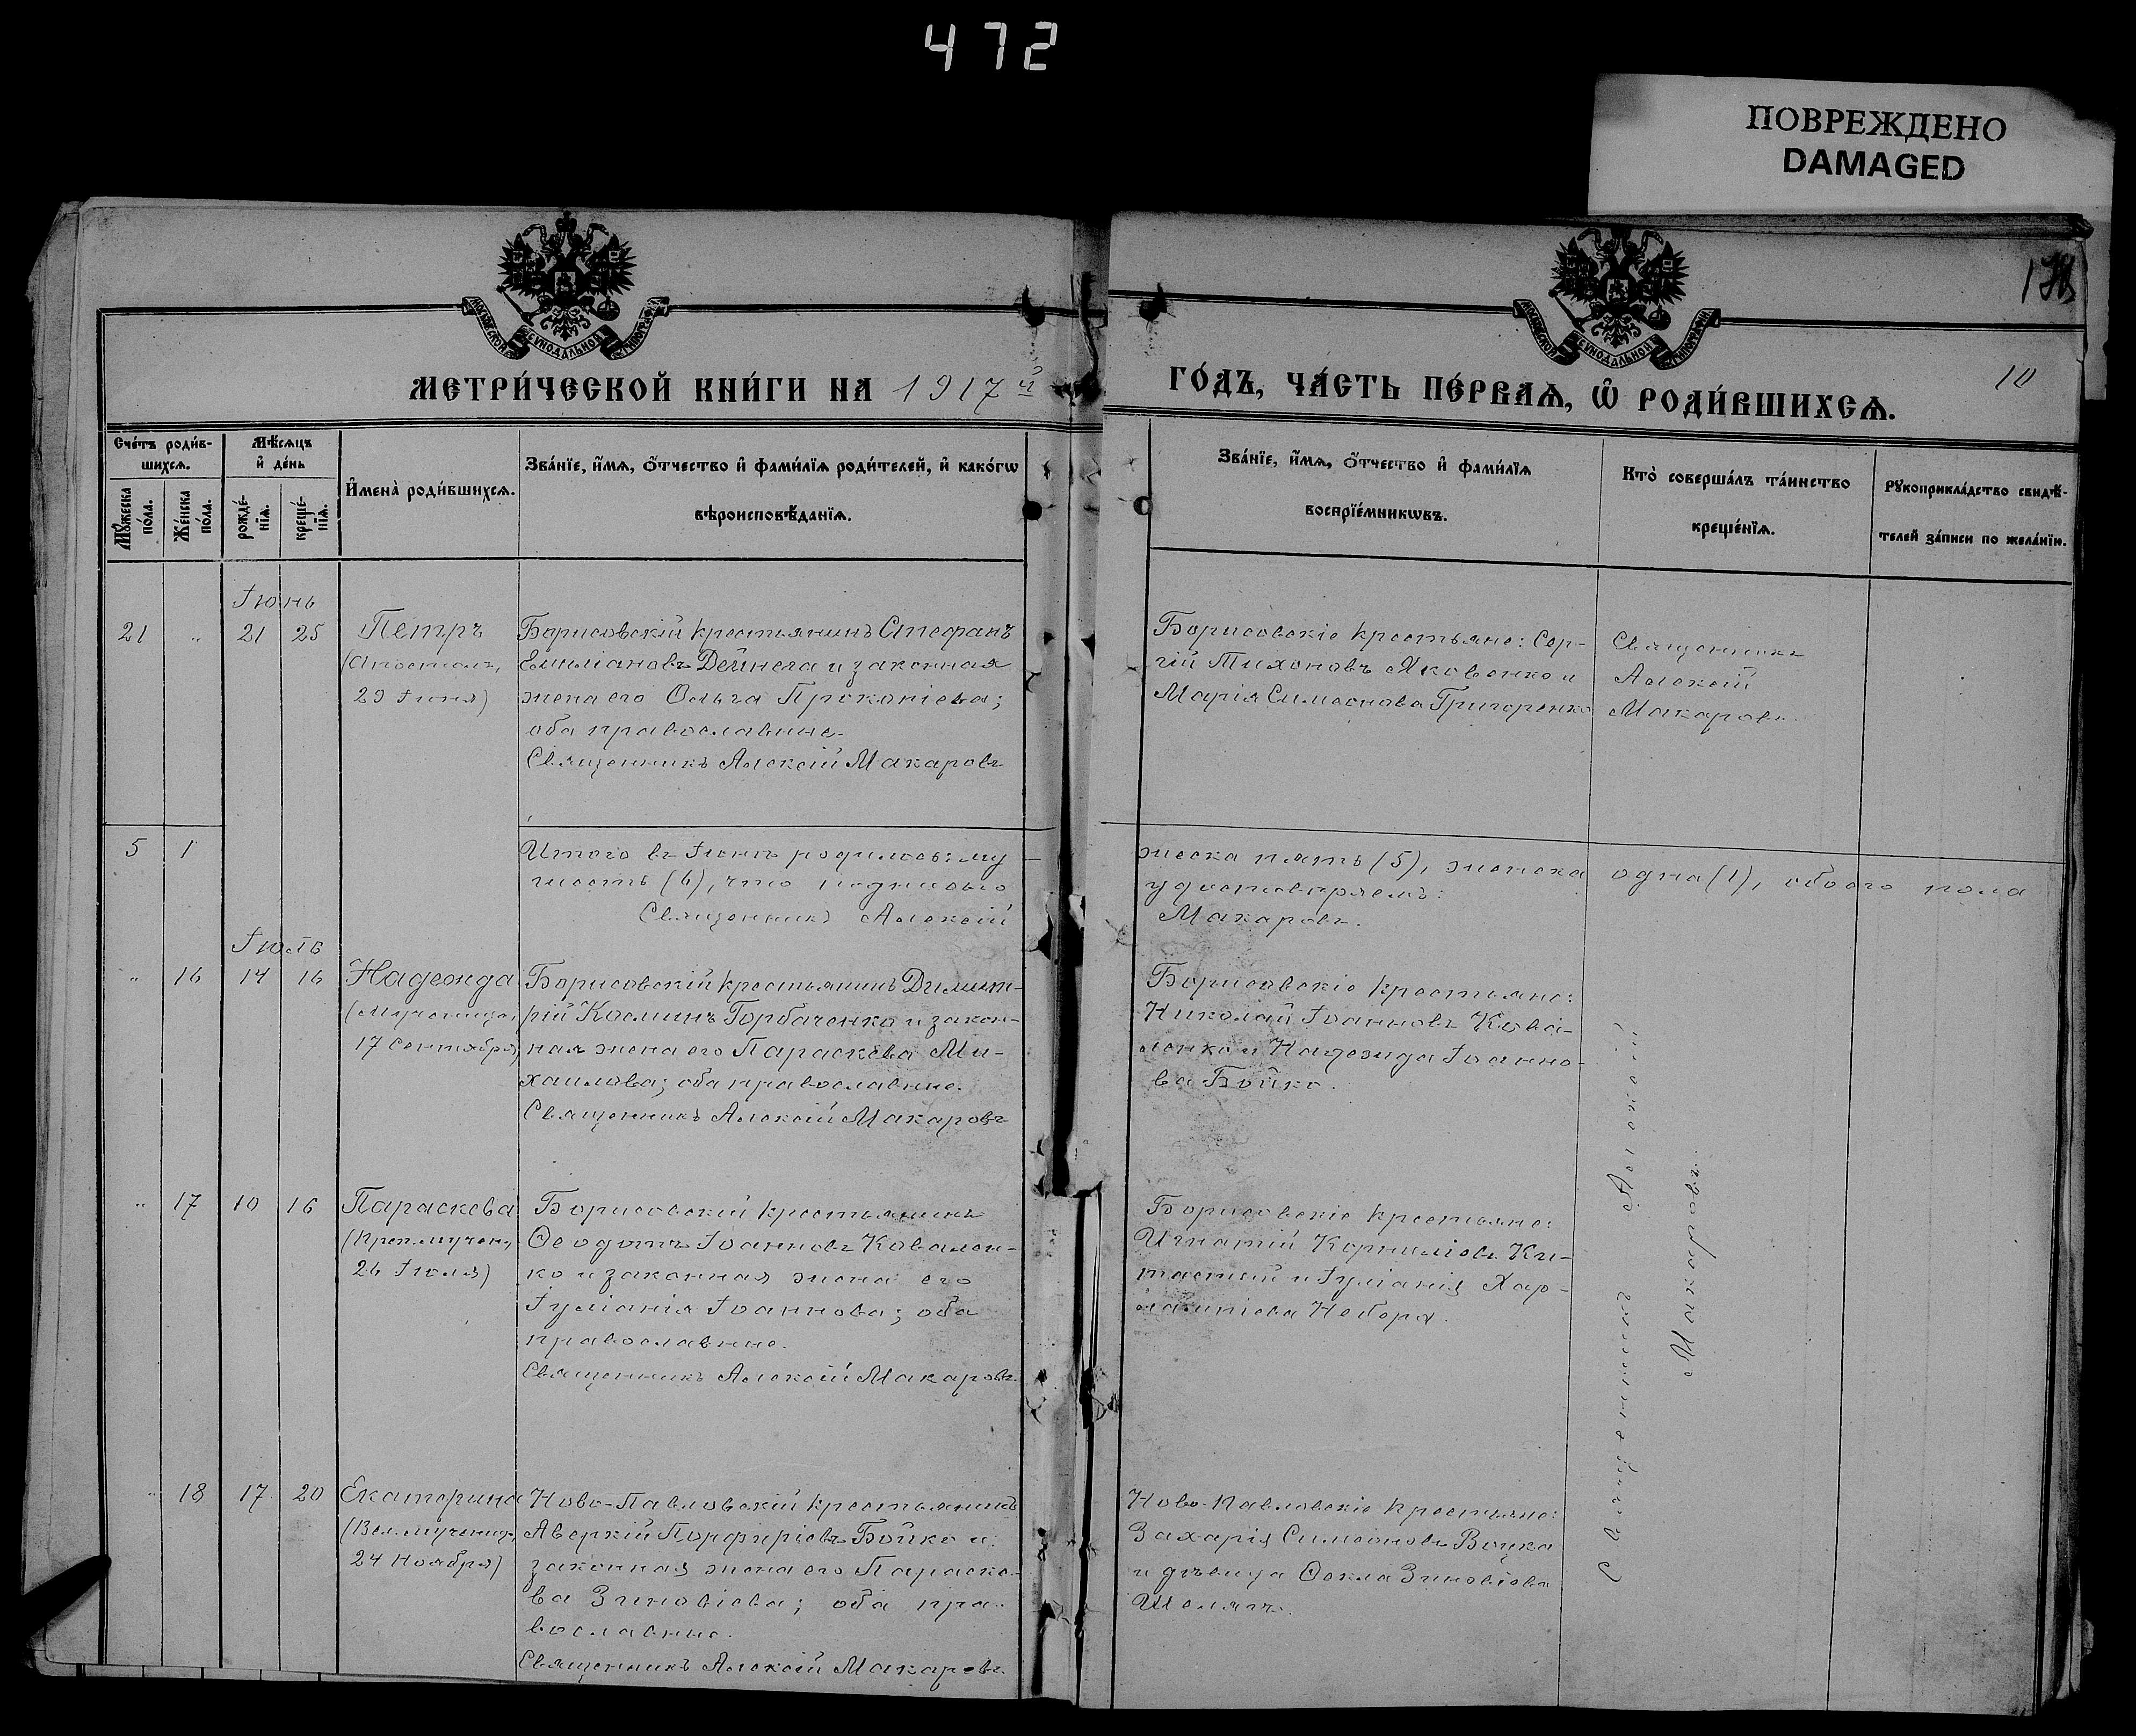 472
ПОВРЕЖДЕНО
DAMAGED
МОСКОВСКОЙ СѴНОДАЛЬНОЙ ТИПОГРАФІИ
МОСКОВСКОЙ СѴНОДАЛЬНОЙ ТИПОГРАФІИ
МЕТРИ́ЧЕСКОЙ КНИ́ГИ НА 1917й
ГО́ДЪ, ЧА́СТЬ ПЕ́РВАѦ, Ѽ РОДИ́ВШИХСѦ.
10
Сче́тъ роди́в-
шихсѧ.
Мѣ́сѧцъ
и҆ де́нь
Мꙋ́жеска по́ла.
Же́нска по́ла.
рожде́-
нїѧ.
креще́-
нїѧ.
И҆мена̀ роди́вшихсѧ.
Зва́нїе, и҆́мѧ, ѻ҆́тчество и҆ фами́лїѧ роди́телей, и҆ како́гѡ
вѣроисповѣ́данїѧ.
Зва́нїе, и҆́мѧ, ѻ҆́тчество и҆ фами́лїѧ
воспрїе́мникѡвъ.
Кто̀ соверша́лъ та́инство
креще́нїѧ.
Рꙋкоприкла́дство свидѣ́-
телей за́писи по жела́нїю.
Іюнь
21 „ 21 25
Петръ
(Апостолъ,
29 Іюня)
Борисовскій крестьянинъ Стефанъ
Емиліановъ Дейнега и законная
жена его Ольга Прокопіева;
оба православные.
Священникъ Алексій Макаровъ
Борисовскіе крестьяне: Сер-
гій Тихоновъ Яковенко и
Марія Симеонова Григоренко
Священникъ
Алексій
Макаровъ.
5 1
Итого въ Іюнѣ родилось: му
жеска пять (5), женска одна (1), обоего пола
шесть (6), что подписью
удостовѣряемъ:
Священникъ Алексій
Макаровъ.
Іюль
„ 16 14 16
Надежда
(Мученица,
17 Сентября)
Борисовскій крестьянинъ Димит-
рій Косминъ Горбаченко и закон-
ная жена его Параскева Ми-
хаилова; оба православные.
Священникъ Алексій Макаровъ
Борисовскіе крестьяне:
Николай Іоанновъ Кова-
ленко и Надежда Іоанно-
ва Бойко.
„ 17 10 16
Параскева
(Преп.мучен.,
26 Іюля)
Борисовскій крестьянинъ
Ѳеодотъ Іоанновъ Ковален-
ко и законная жена его
Іуліанія Іоаннова; оба
православные.
Священникъ Алексій Макаровъ.
Борисовскіе крестьяне:
Игнатій Корниліовъ Ки-
тастый и Іуліанія Хар-
лампіева Небора.
„ 18 17 20
Екатерина
(Вел.мучениц.,
24 Ноября)
Ново-Павловскій крестьянинъ
Аверкій Порфиріевъ Бойко и
законная жена его Параске-
ва Зиновіева; оба пра-
вославные.
Священникъ Алексій Макаровъ.
Ново-Павловскіе крестьяне:
Захарія Симеоновъ
и дѣвица Ѳекла Зиновіева
Священникъ Алексій
Макаровъ.